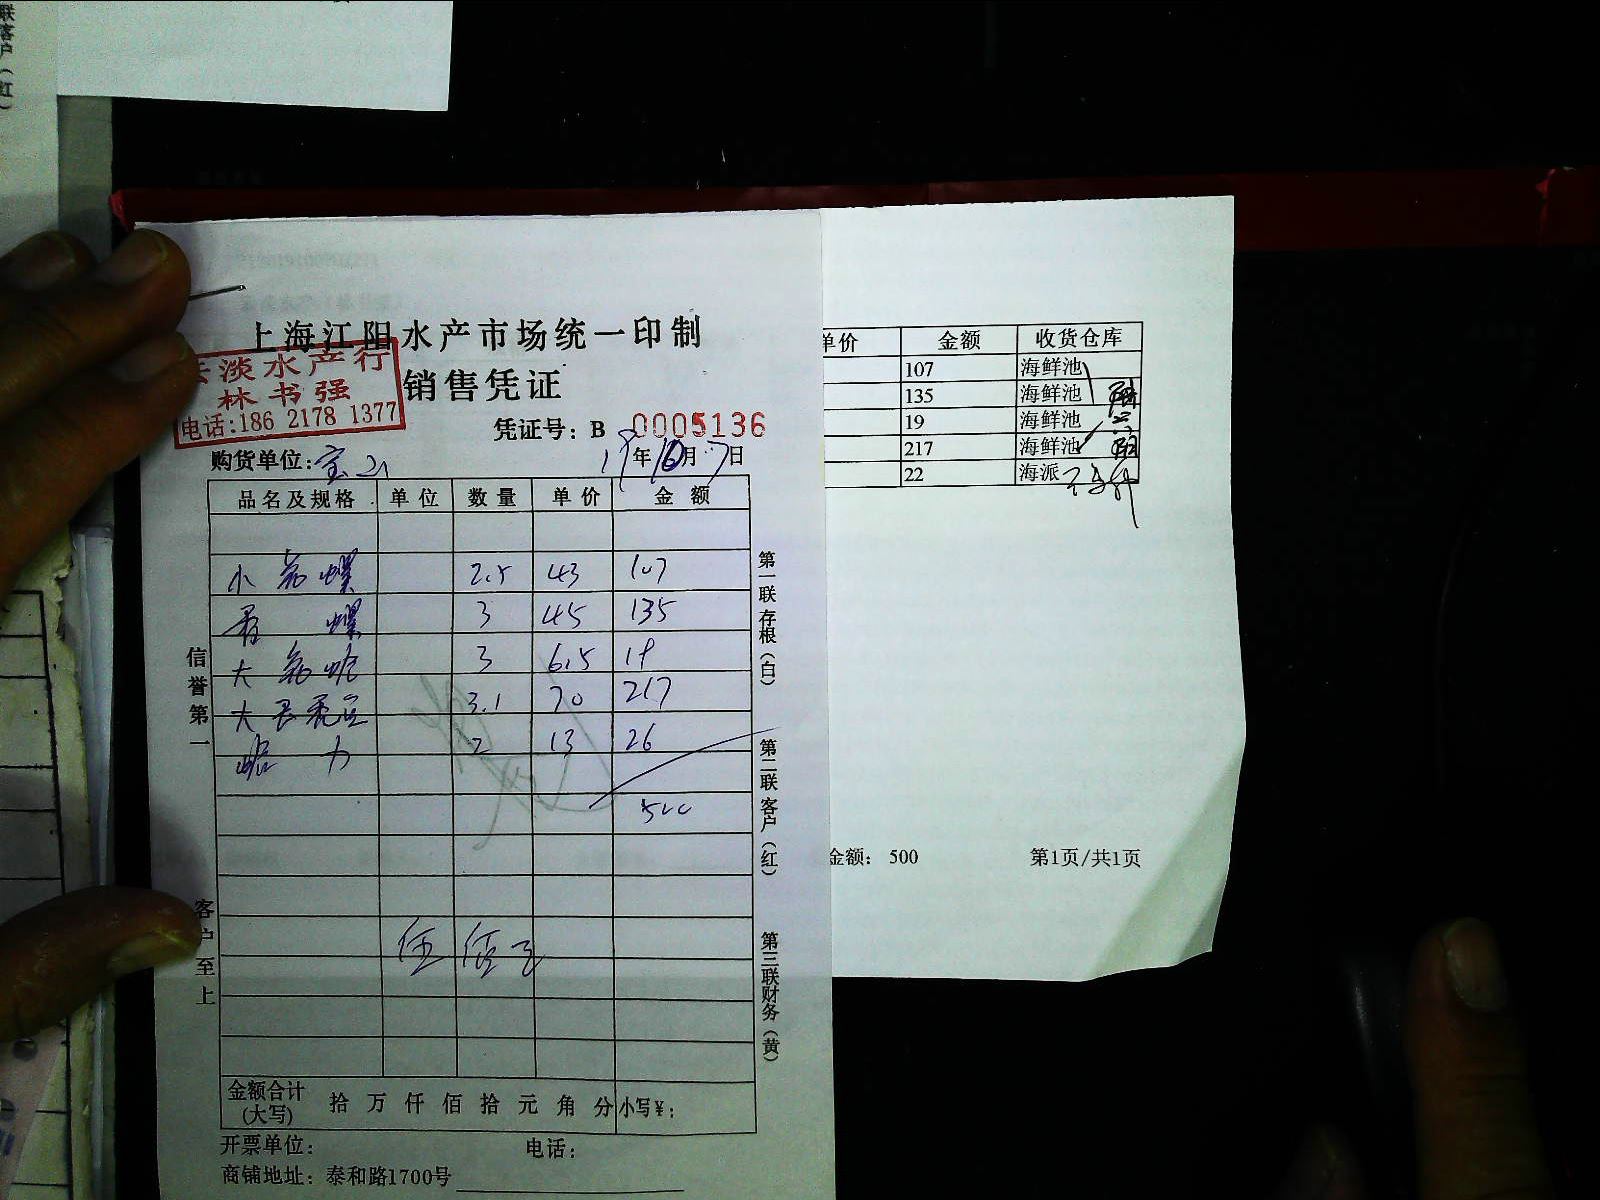 联客户（红）
上海江阳水产市场统一印制
淡水产行
林书强
电话:186 2178 1377
销售凭证
凭证号：B 0005136
购货单位：宝山
19年10月7日
品名及规格 单位 数量 单价 金额
小 螺 2.5 43 107
香 螺 3 45 135
大 蛤 3 6.5 19
大 3.1 70 217
2 13 26
500
信誉第一
客户至上
第一联存根（白）
第二联客户（红）
第三联财务（黄）
金额合计(大写) 拾 万 仟 佰 拾 元 角 分 小写¥：
开票单位： 电话：
商铺地址：泰和路1700号
单价 金额 收货仓库
107 海鲜池
135 海鲜池
19 海鲜池
217 海鲜池
22 海派
金额： 500 第1页/共1页